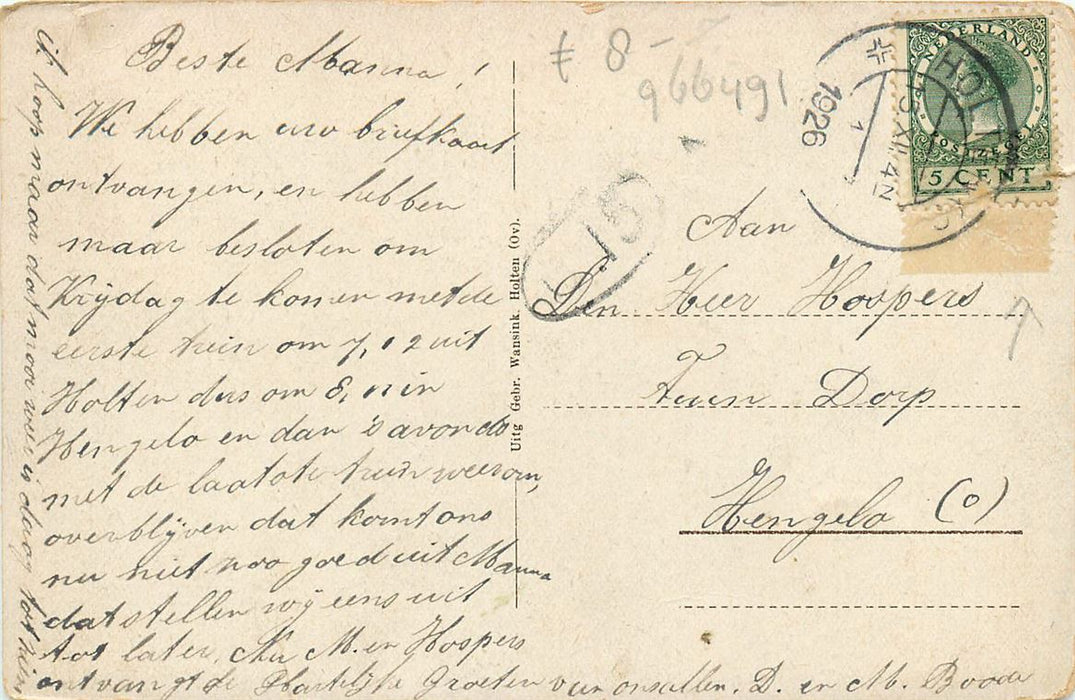 Beste Manna!
We hebben uw briefkaart
ontvangen, en hebben
maar besloten om
Vrijdag te komen met de
eerste trein om 7,12 uit
Holten dus om 8,11 in
Hengelo en dan 's avonds
met de laatste trein weerom,
overblijven dat komt ons
nu niet zoo goed uit Manna
dat stellen wij eens uit
tot later, Nu M. en Hospers
ontvangt de Hartelijke Groeten van ons allen, D. en M. Boode
ik hoop maar dat mooi weer is dag tot zien
Uitg Gebr. Wansink, Holten (Ov).
£ 8-
966491
NEDERLAND
POSTZEGEL
5 CENT
HOLTEN
15 XII 4N
1926
15
Aan
Den Heer Hospers
Tuin Dorp
Hengelo (O)
7